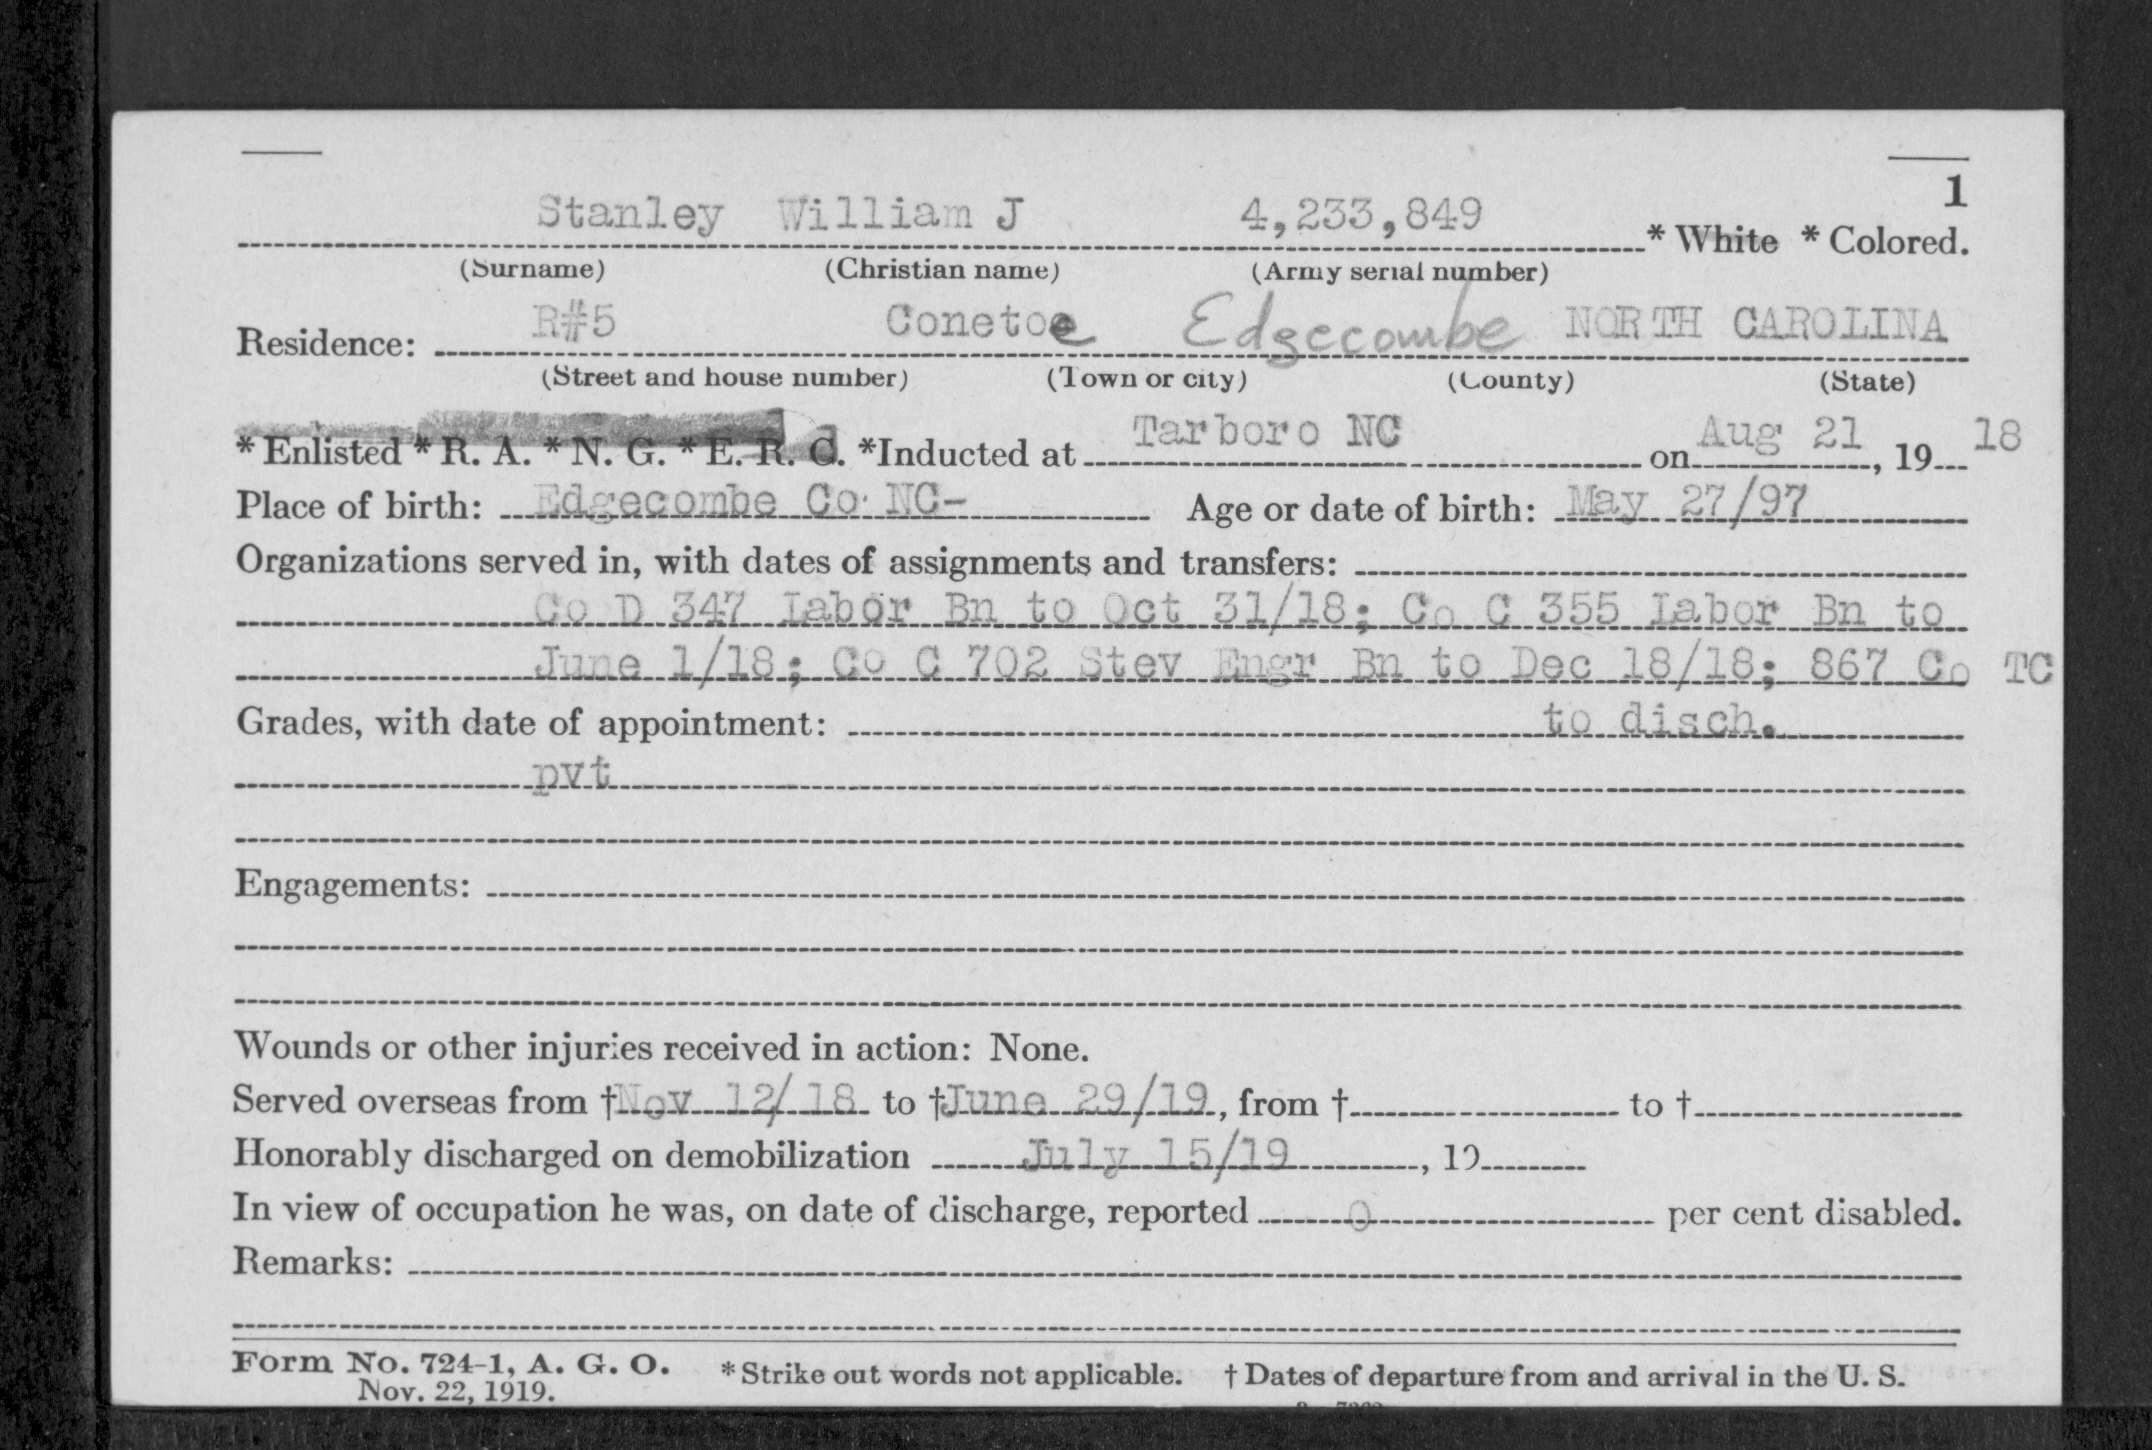 1
Stanley William J 4,233,849 * White * Colored.
(Surname) (Christian name) (Army serial number)
Residence: R#5 Conetoe Edgecombe NORTH CAROLINA
(Street and house number) (Town or city) (County) (State)
* Enlisted * R. A. * N. G. * E. R. C. *Inducted at Tarboro NC on Aug 21, 19 18
Place of birth: Edgecombe Co NC- Age or date of birth: May 27/97
Organizations served in, with dates of assignments and transfers:
Co D 347 Labor Bn to Oct 31/18; Co C 355 Labor Bn to
June 1/18; Co C 702 Stev Engr Bn to Dec 18/18; 867 Co TC
Grades, with date of appointment: to disch.
pvt
Engagements:
Wounds or other injuries received in action: None.
Served overseas from †Nov 12/18 to †June 29/19, from † to †
Honorably discharged on demobilization July 15/19, 19
In view of occupation he was, on date of discharge, reported 0 per cent disabled.
Remarks:
Form No. 724-1, A. G. O. * Strike out words not applicable. † Dates of departure from and arrival in the U. S.
Nov. 22, 1919.